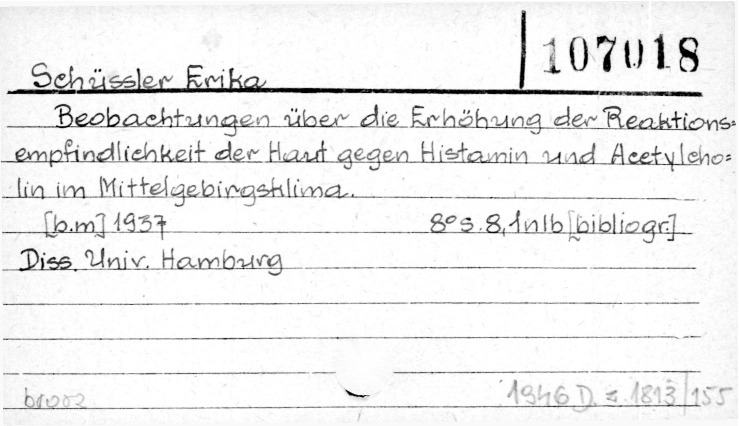 107018
Schüssler Erika
Beobachtungen über die Erhöhung der Reaktions=
empfindlichkeit der Haut gegen Histamin und Acetylcho=
lin im Mittelgebirgsklima.
[b.m] 1937 8° s. 8, 1nlb [bibliogr.]
Diss. Univ. Hamburg
1946 D. z. 1813/155